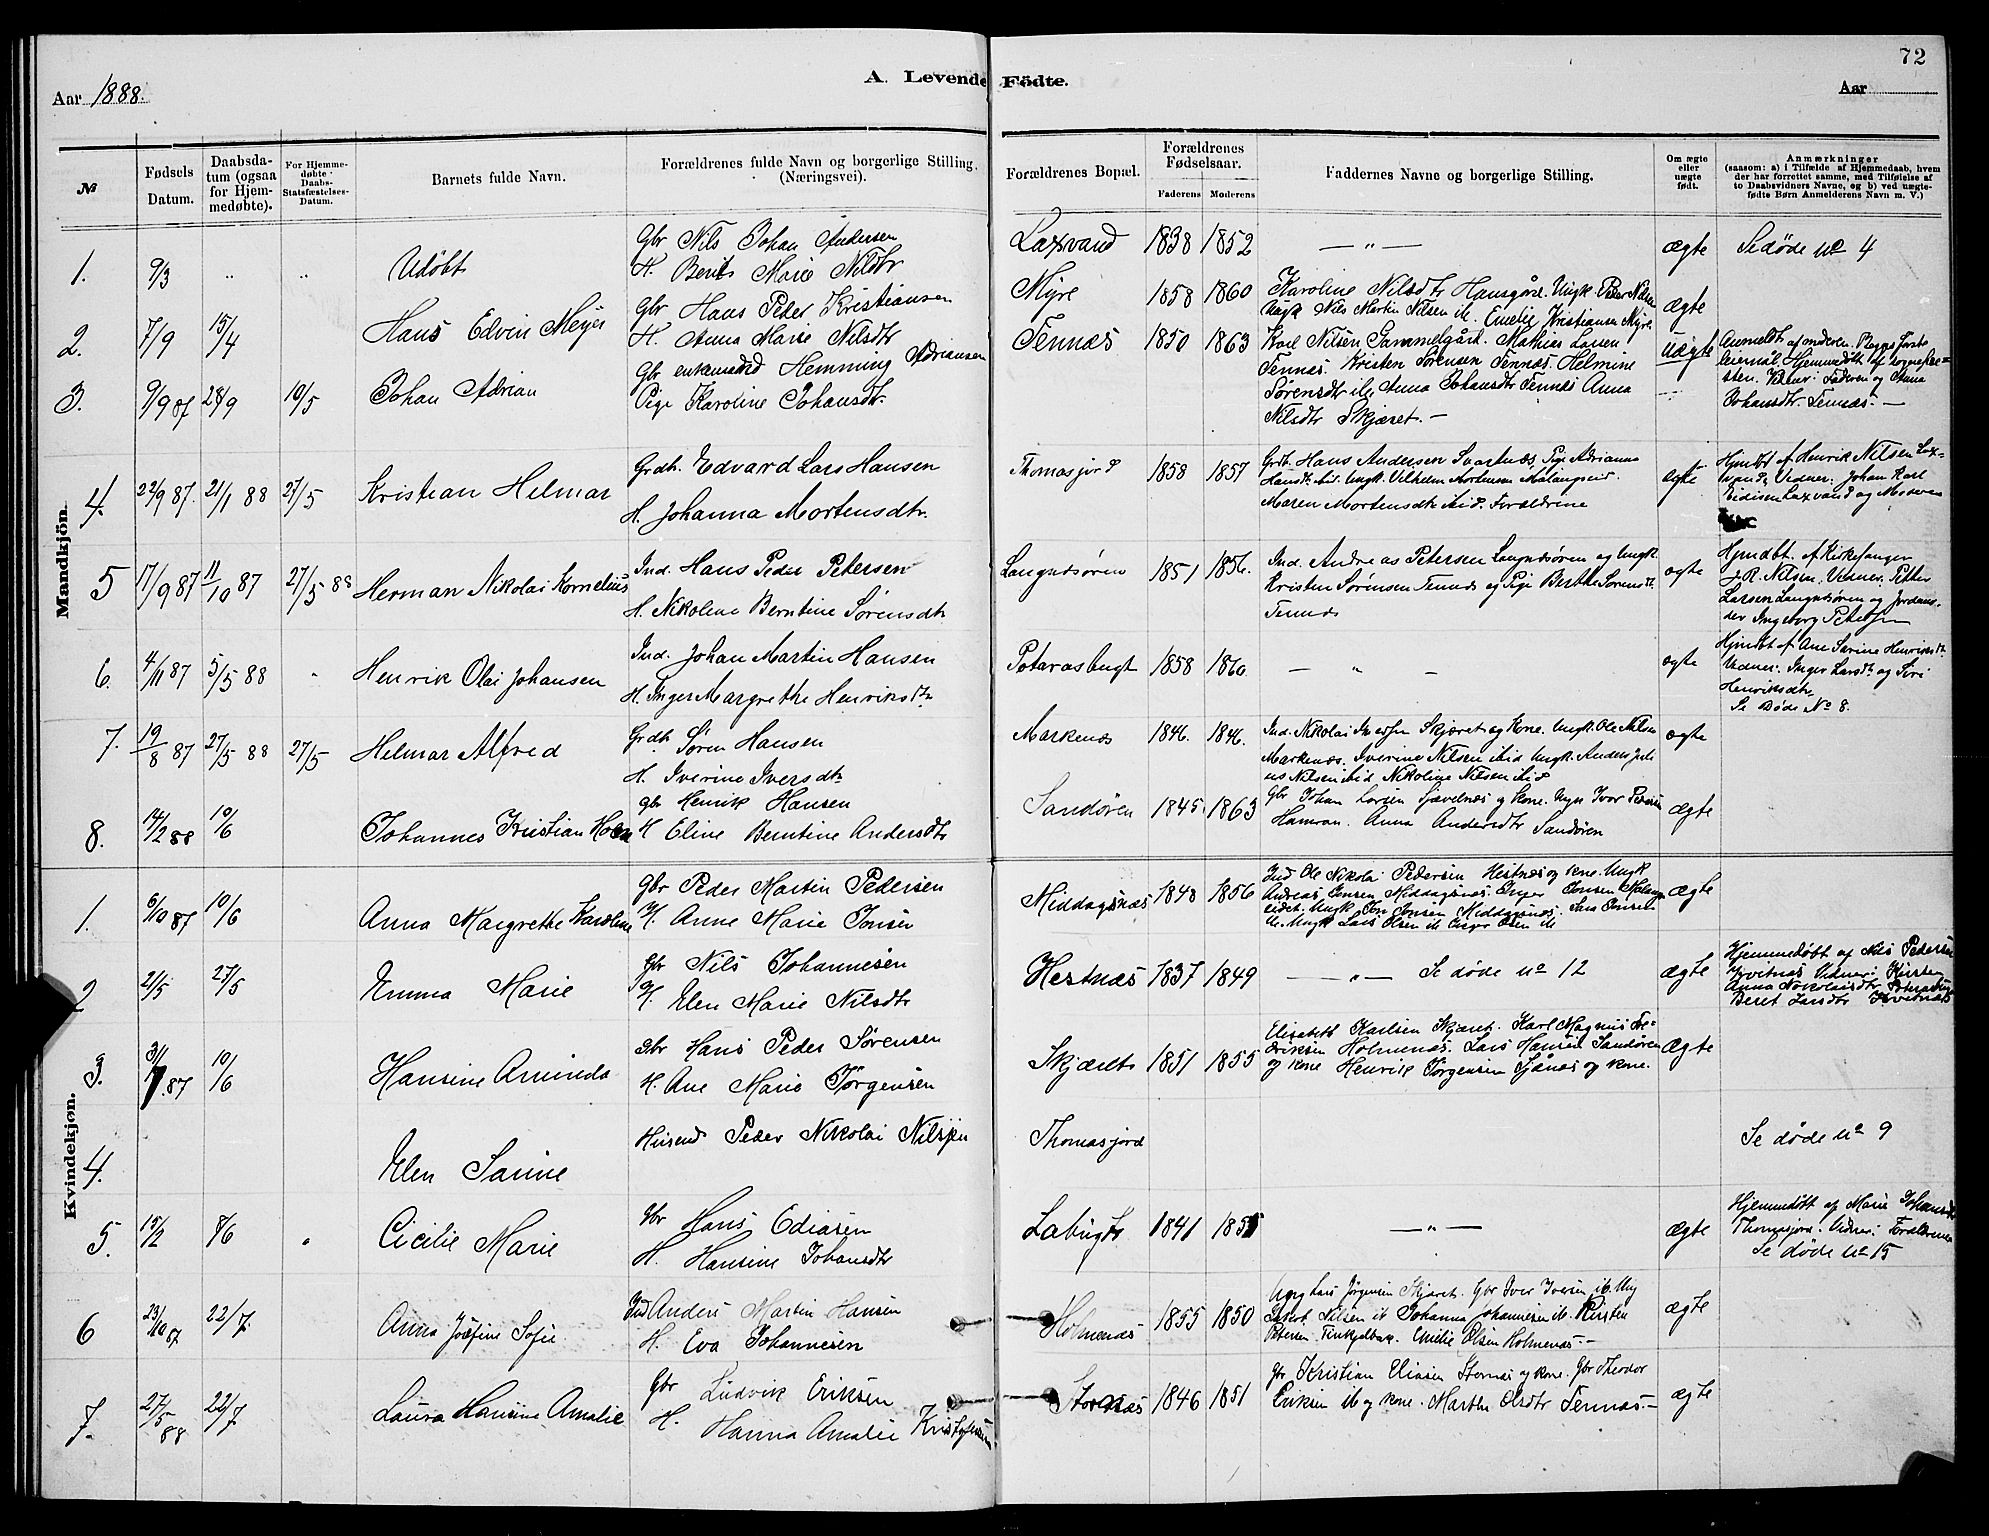 72
A. Levende Födte.
Aar 1888.
Aar
№
Fødsels Datum.
Daabsdatum (ogsaa for Hjemmedøbte).
For Hjemmedøbte Daabs-Statsfæstelses-Datum.
Barnets fulde Navn.
Forældrenes fulde Navn og borgerlige Stilling. (Næringsvei).
Forældrenes Bopæl.
Forældrenes Fødselsaar.
Faderens
Moderens
Faddernes Navne og borgerlige Stilling.
Om ægte eller uægte født.
Anmærkninger
(saasom: a) i Tilfælde af Hjemmedaab, hvem der har forrettet samme, med Tilføielse af to Daabsvidners Navne, og b) ved uægtefødte Børn Anmelderens Navn m. V.)
Mandkjön.
1. 9/3 " " Udöbt
Gbr Nils Johan Andersen
H. Berit Marie Nilsdtr
Laxvand 1838 1852 — " — ægte Se döde no 4
2. 7/9 15/4 Hans Edvin Meyer
Gbr Hans Peder Kristiansen
H. Anna Marie Nilsdtr
Myre 1858 1860
Karoline Nilsdtr Hansgård. Ungk. Peder Nilsen
Ungk Nils Martin Nilsen ib. Emelie Kristiansen Myre.
ægte
3. 9/9 87 28/9 10/5 Johan Adrian
Gbr enkemand Hemming Adriansen
Pige Karoline Johansdtr.
Tennæs 1850 1863
Karl Nilsen Gammelgård. Mathias Larsen
Tennæs. Kristen Sörensen Tennæs. Helmine
Sörensdtr ib. Anna Johansdtr Tennæs Anna
Nilsdtr Skjæret. —
Uægte
Anmeldt af moderen. Begges første
leiermål. Hjemmedöbt af sognepresten.
Vidner: Faderen og Anna
Johansdtr. Tennæs. —
4. 22/9 87. 21/1 88 27/5 Kristian Helmar
Grdb. Edvard Lars Hansen
H. Johanna Mortensdtr.
Thomasjord 1858 1857
Grdb. Hans Andersen Svartnæs, Pige Adrianna
Hansdtr ibid. Ungk. Vilhelm Mortensen Malangseid.
Maren Mortensdtr ibid. Forældrene
ægte
Hjmdbt af Henrik Nilsen Laxvand.
Vidner: Johan Karl
Eidisen Laxvand og Moderen
5 17/9 87 11/10 87 27/5 88 Herman Nikolai Kornelius
Ind. Hans Peder Petersen
H. Nikoline Berntine Sörensdtr.
Langnæsören 1851 1856.
Ind. Andreas Petersen Langnæsören og Ungk.
Kristen Sörensen Tennæs og Pige Berthe Sörensdtr
Tennæs
ægte
Hjmdbt. af Kirkesanger
J. R. Nilsen. Vidner. Petter
Larsen Langnæsören og Jordemoder
Ingeborg Petersen
6. 4/11 87 5/5 88 " Henrik Olai Johansen
Ind. Johan Martin Hansen
H. Inger Margrethe Henriksdtr
1858 1860 — " — ægte
Hjmdbt af Ane Sarine Henriksdtr.
Vidner. Inger Larsdtr. og Siri
Henriksdtr.
Se Döde No 8.
7. 19/8 87 27/5 88 27/5 Helmar Alfred
Grdb. Sören Hansen
H. Iverine Iversdtr
Markenæs 1846. 1846.
Ind. Nikolai Iversen Skjæret og Kone. Ungk. Ole Nilsen
Markenæs. Iverine Nilsen ibid Ungk. Anders Julius
Nilsen ibid Nikoline Nilsen ibid
ægte
8. 14/2 88 10/6 Johannes Kristian Holm
Gbr Henrik Hansen
H Eline Berntine Andersdtr
Sandören 1845 1863
Gbr Johan Larsen Sjævelnæs og Kone. Ungk Ivar Pedersen
Hamran. Anna Andersdtr Sandören
ægte
Kvindekjøn.
1. 6/10 87 10/6 Anna Margrethe Karoline
Gbr Peder Martin Pedersen
H. Anne Marie Jonsen
Middagsnæs 1848 1856
Ind Ole Nikolai Pedersen Hestnæs og kone. Ungk
Andreas Jensen Middagsnæs. Inger Jonsen Malangseidet.
Ungk Jon Jonsen Middagsnæs. Sara Jonsen
ib. Ungk Lars Olsen ib Inger Olsen ib
ægte
2 21/5 27/5 Emma Marie
Gbr Nils Johannesen
H. Elen Marie Nilsdtr
Hestnæs 1837 1849 — " — Se döde no 12 ægte
Hjemmedöbt af Nils Pedersen
Kvitnæs Vidner: Kirsten
Anna Nikolaisdtr
Beret Larsdtr Kvitnæs
3. 31/7.87 10/6 Hansine Aminda
Gbr Hans Peder Sörensen
H. Ane Marie Jörgensen
Skjæret 1851 1855
Elisabeth Karlsen Skjæret. Karl Magnus Fredriksen
Holmenæs. Lars Hansen Sandören
og kone Henrik Jörgensen Sjånæs og kone.
ægte
4. Elen Sarine
Husmd Peder Nikolai Nilsen
Thomasjord
Se döde no 9
5. 15/2 8/6 " Cicilie Marie
Gbr Hans Ediasen
H. Hansine Johansdtr
Labugt 1841 1855 — " — ægte
Hjemmedöbt af Marie Johansdtr
Thomasjord. Vidner: Forældrene
Se döde no 15
6 23/10 87 22/7 Anna Josefine Sofie
Ind Anders Martin Hansen
H. Eva Johannesen
Holmenæs 1855 1850
Ungk Lars Jörgensen Skjæret. Gbr Iver Iversen ib. Ung
Jakob Nilsen ib Johanna Johannesen ib. Kirsten
Petersen. Finkjelbak. Emilie Olsen Holmenæs. —
ægte
7. 27/5 88 22/7 Laura Hansine Amalie
Gbr Ludvik Eriksen
H. Hanna Amalie Kristofersen
Stornæs 1846 1851
Gbr Kristian Eliasen Stornæs og kone. Gbr Theodor
Eriksen ib og kone. Marthe Olsdtr Tennæs. —
ægte